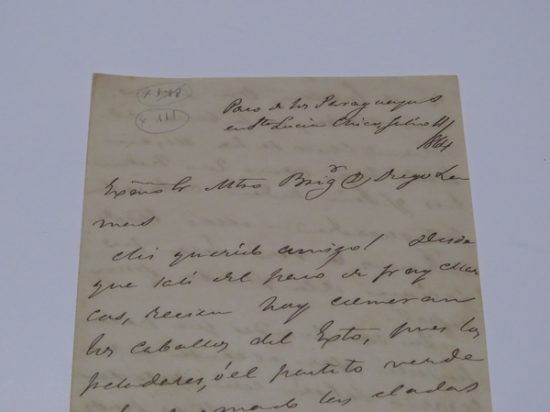 Paso de los Paraguayos
en Sta Lucia Chico, Julio
1864
Exmo Sr Mtro Brigr D Diego La
mas
Mi querido amigo! Desde
que salí del paso de fray Mar
cos, recien hoy comeran
los caballos del Exto, pues los
peladares, ó el partito verde
las eladas